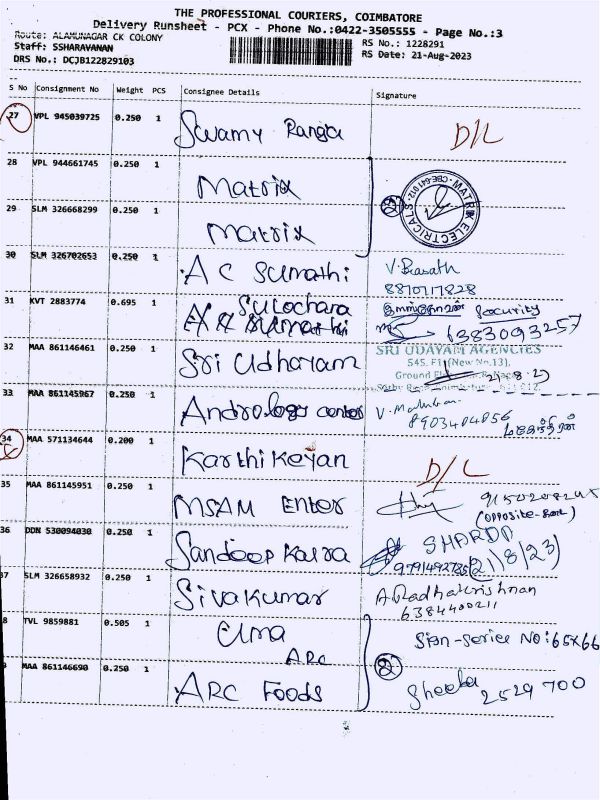 THE PROFESSIONAL COURIERS, COIMBATORE
Delivery Runsheet - PCX - Phone No.:0422-3505555 - Page No.:3
Route: ALAMUNAGAR CK COLONY
RS No.: 1228291
Staff: SSHARAVANAN
RS Date: 21-Aug-2023
DRS No.: DCJB122829103
S No Consignment No Weight PCS Consignee Details Signature
27 VPL 945039725 0.250 1 Swamy Ranga D/L
28 VPL 944661745 0.250 1 Matrix
MATRIX ELECTRICALS CBE-641 012
29 SLM 326668299 0.250 1 Matrix
30 SLM 326702653 0.250 1 A C Sumathi V. Prasath
8870717828
31 KVT 2883774 0.695 1 Sulochara Security
6383093257
32 MAA 861146461 0.250 1 Sri Udhayam SRI UDAYAM AGENCIES
545, F1 (New No.13),
Ground
21.8.23
33 MAA 861145967 0.250 1 Andrology center V.
8903404056
34 MAA 571134644 0.200 1 Karthikeyan D/L
35 MAA 861145951 0.250 1 MSAM Enter
(opposite-
36 DDN 530094030 0.250 1 Sandeep Kalra SHARDA
9791492785 (21/8/23)
37 SLM 326658932 0.250 1 Sivakumar A. Radhakrishnan
6384400211
8 TVL 9859881 0.505 1 Elma Sign-service NO: 65x66
ARC
MAA 861146690 0.250 1 ARC Foods Sheeba 2529 700